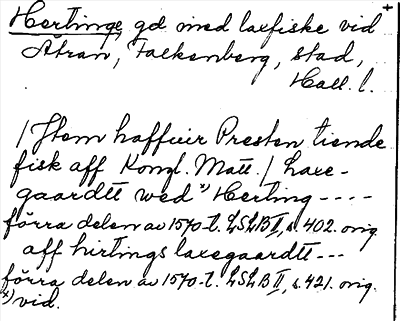 Hertinge, gd med laxfiske vid
Ätran, Falkenberg, stad,
Hall. l.
/Jtem haffuir Presten tiende
fisk aff Kongl. Matt./ laxe-
gaardtt wed x) Herting ----
förra delen av 1570-t. LSLB II, s. 402. orig
aff hirtings laxegaardtt ---
förra delen av 1570-t. LSLB II, s. 421. orig.
x) vid.